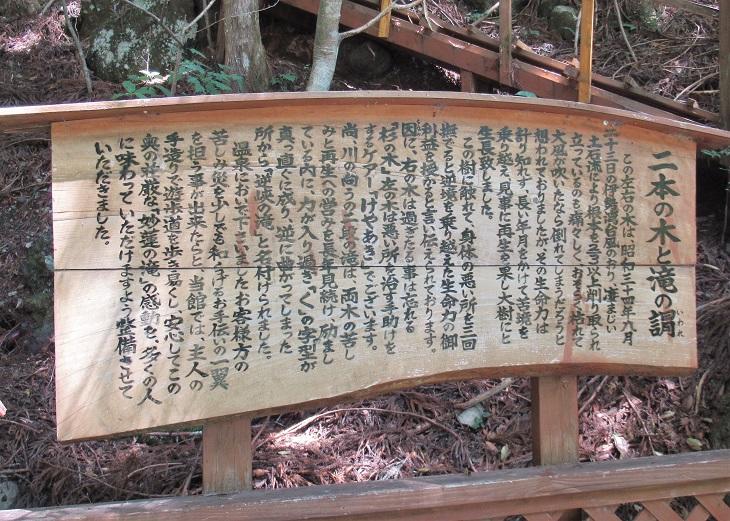 二本の木と滝の謂
いわれ
この左右の木は、昭和三十四年九月
二十三日の伊勢湾台風のおり、凄まじい
土石流により根本を三米以上削り取られ
立っているのも痛々しく、おそらく枯れて
大風が吹いたなら倒れてしまうだろうと
想われておりましたが、その生命力は
計り知れず、長い年月をかけて苦境を
乗り越え、見事に再生を果し大樹にと
生長致しました。
この樹に触れて、身体の悪い所を三回
撫でると逆境を乗り越えた生命力の御
利益を授かると言い伝えられております。
因に、右の木は過ぎたる事は忘れる
「杉の木」、左の木は悪い所を治す手助けを
するケアー「けやあき」でございます。
尚、川の向うの二段の滝は、両木の苦し
みと再生への営みを長年見続け、励まし
ている内に、力が入り過ぎ「く」の字型が
真っ直ぐに成り、逆に曲がってしまった
所から「逆峡の滝」と名付けられました。
温泉においで下さいましたお客様方の
苦しみ災を少しでも和らげるお手伝いの一翼
を担う事が出来たらと、当館では、主人の
手造りで遊歩道を歩き易くし、安心してこの
奥の荘厳な「妙蓮の滝」の感動を、多くの人
に味わっていただけますよう整備させて
いただきました。